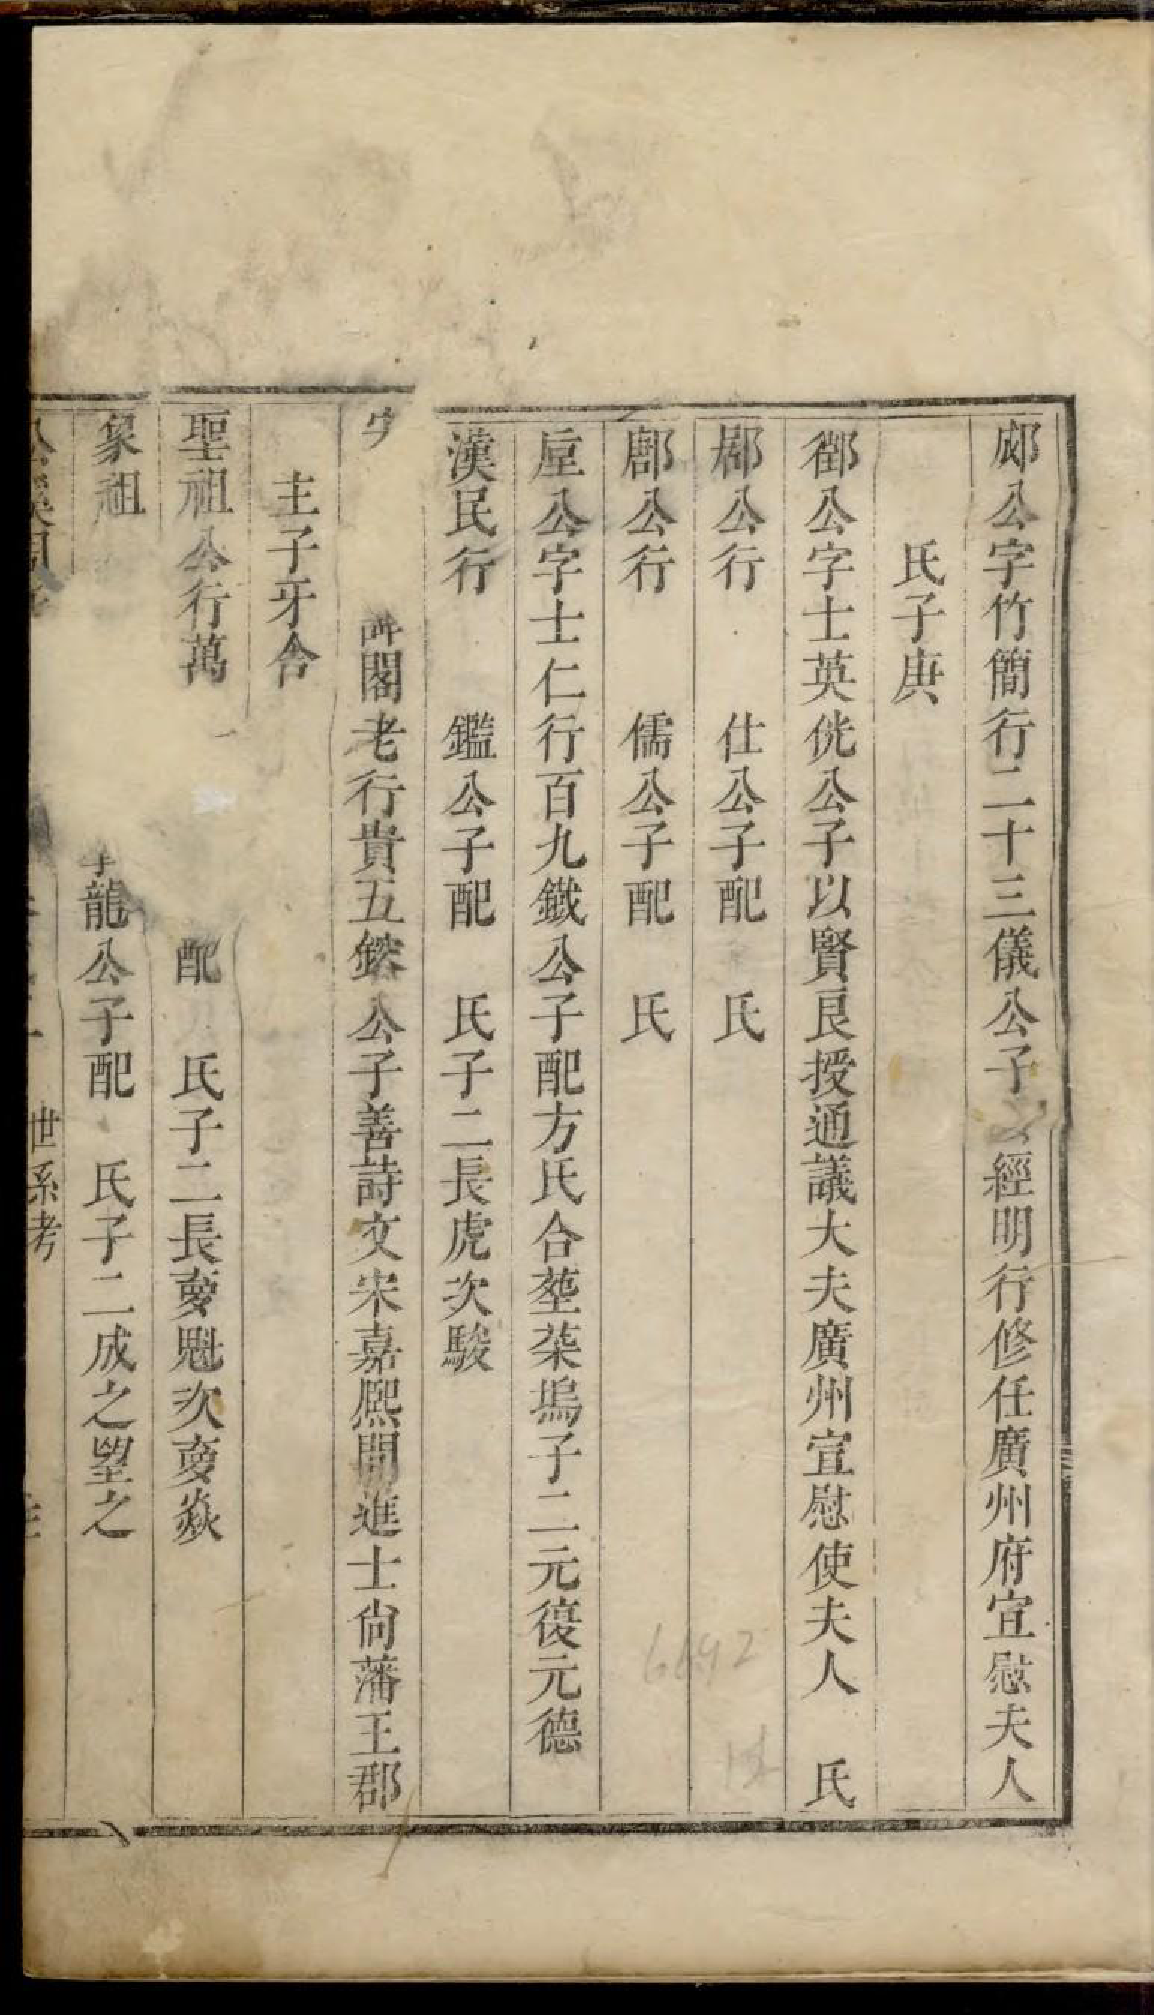 邺公字竹簡行二十三儀公子以經明行修任廣州府宣慰夫人
氏子庚
鄮公字士英侊公子以賢良授通議大夫廣州宣慰使夫人 氏
郡公行 仕公子配 氏
鄜公行 儒公子配 氏
垕公字士仁行百九鐡公子配方氏合塟葇塢子二元復元德
漢民行 鑑公子配 氏子二長虎次駿
閣老行貴五鎔公子善詩文宋嘉熙間進士尙藩王郡
主子牙含
聖祖公行萬 配 氏子二長夔魁次夔焱
象祖 龍公子配 氏子二成之望之
世系考
6692